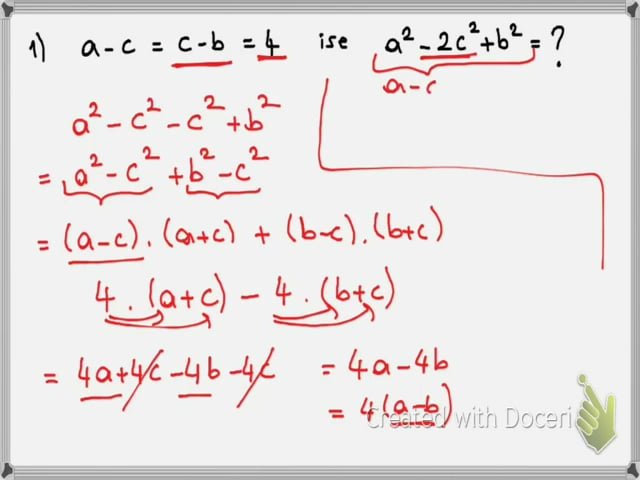 1) a-c = c-b = 4 ise a² - 2c² + b² = ?
a-c
a² - c² - c² + b²
= a² - c² + b² - c²
= (a-c) . (a+c) + (b-c) . (b+c)
4 . (a+c) - 4 . (b+c)
= 4a + 4c - 4b - 4c = 4a - 4b
= 4(a-b)
Created with Doceri